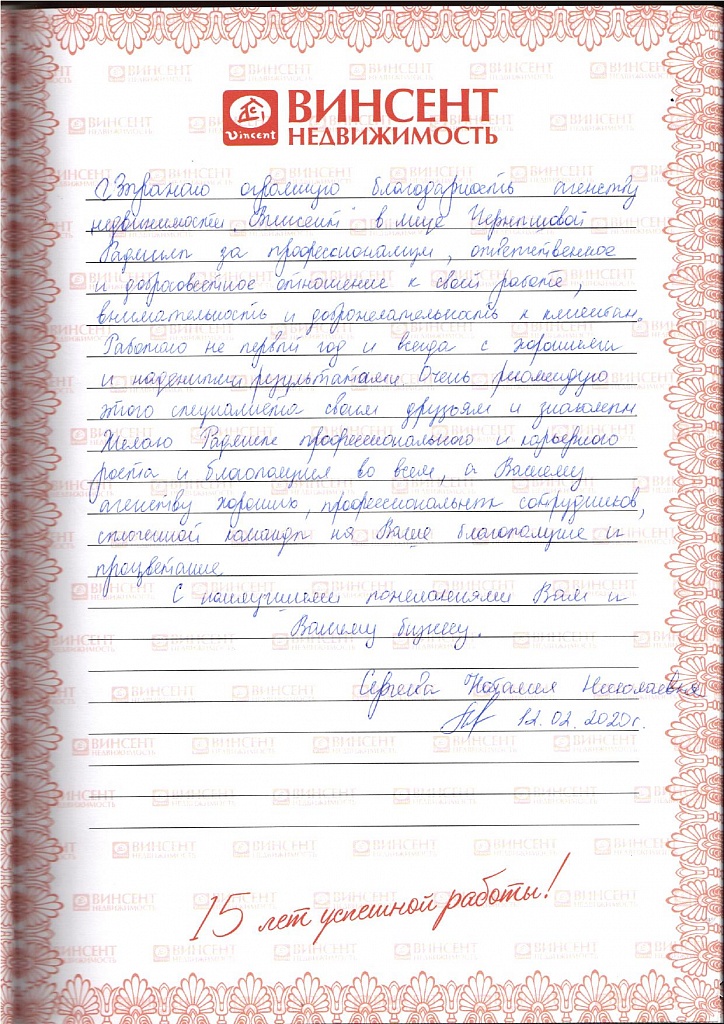 Vincent
ВИНСЕНТ
НЕДВИЖИМОСТЬ
Выражаю огромную благодарность агенству
недвижимости „Винсент" в лице Чернышовой
Радмилы за профессионализм, ответственное
и добросовестное отношение к своей работе,
внимательность и доброжелательность к клиентам.
Работаю не первый год и всегда с хорошими
и надежными результатами. Очень рекомендую
этого специалиста своим друзьям и знакомым
Желаю Радмиле профессионального и карьерного
роста и благополучия во всем, а Вашему
агенству хороших, профессиональных сотрудников,
сплоченной команды на Ваше благополучие и
процветание
С наилучшими пожеланиями Вам и
Вашему бизнесу.
Сергеева Наталия Николаевна
12.02.2020г.
15 лет успешной работы!